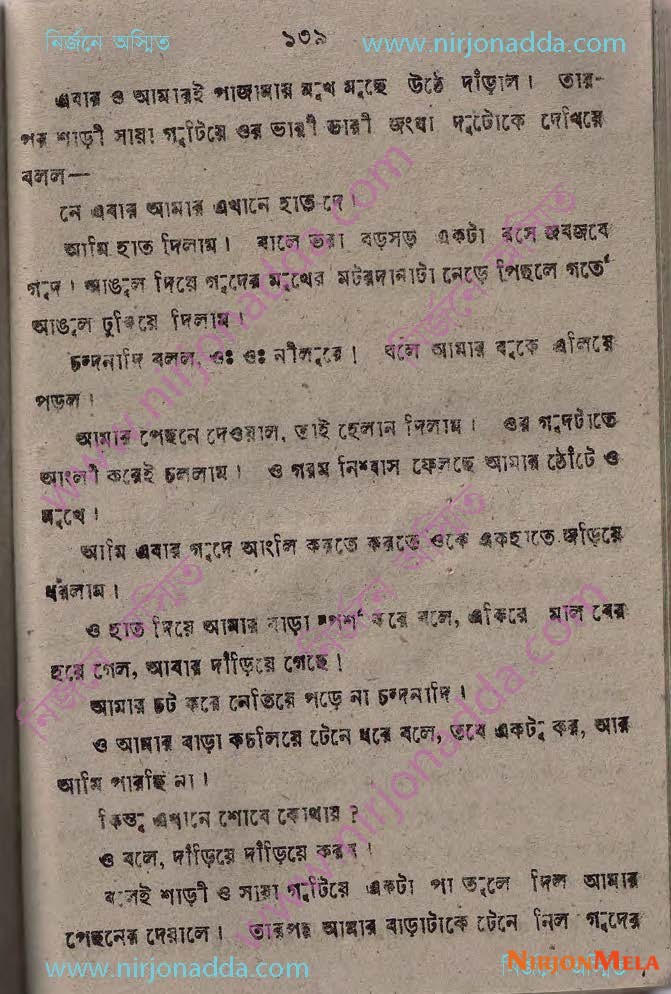 নির্জনে অস্মিত ১৩৯ www.nirjonadda.com
এবার ও আমারই পাজামায় মুখ মুছে উঠে দাঁড়াল। তার-
পর শাড়ী সায়া গুটিয়ে ওর ভারী ভারী জংঘা দুটোকে দেখিয়ে
বলল—
নে এবার আমার এখানে হাত দে।
আমি হাত দিলাম। বালে ভরা বড়সড় একটা রসে জবজবে
গুদ। আঙুল দিয়ে গুদের মুখের মটরদানাটা নেড়ে পিছলে গর্তে
আঙুল ঢুকিয়ে দিলাম।
চন্দনাদি বলল, ওঃ ওঃ নীলুরে! বলে আমার বুকে এলিয়ে
পড়ল।
আমার পেছনে দেওয়াল, তাই হেলান দিলাম। ওর গুদটাতে
আংলী করেই চললাম। ও গরম নিশ্বাস ফেলছে আমার ঠোঁটে ও
মুখে।
আমি এবার গুদে আংলি করতে করতে ওকে একহাতে জড়িয়ে
ধরলাম।
ও হাত দিয়ে আমার বাড়া স্পর্শ করে বলে, একিরে মাল বের
হয়ে গেল, আবার দাঁড়িয়ে গেছে!
আমার চট করে নেতিয়ে পড়ে না চন্দনাদি।
ও আমার বাড়া কচলিয়ে টেনে ধরে বলে, তবে একটু কর, আর
আমি পারছি না।
কিন্তু এখানে শোবে কোথায়?
ও বলে, দাঁড়িয়ে দাঁড়িয়ে করব।
বলেই শাড়ী ও সায়া গুটিয়ে একটা পা তুলে দিল আমার
পেছনের দেয়ালে। তারপর আমার বাড়াটাকে টেনে নিল গুদের
www.nirjonadda.com নির্জনে অস্মিত
NIRJONMELA